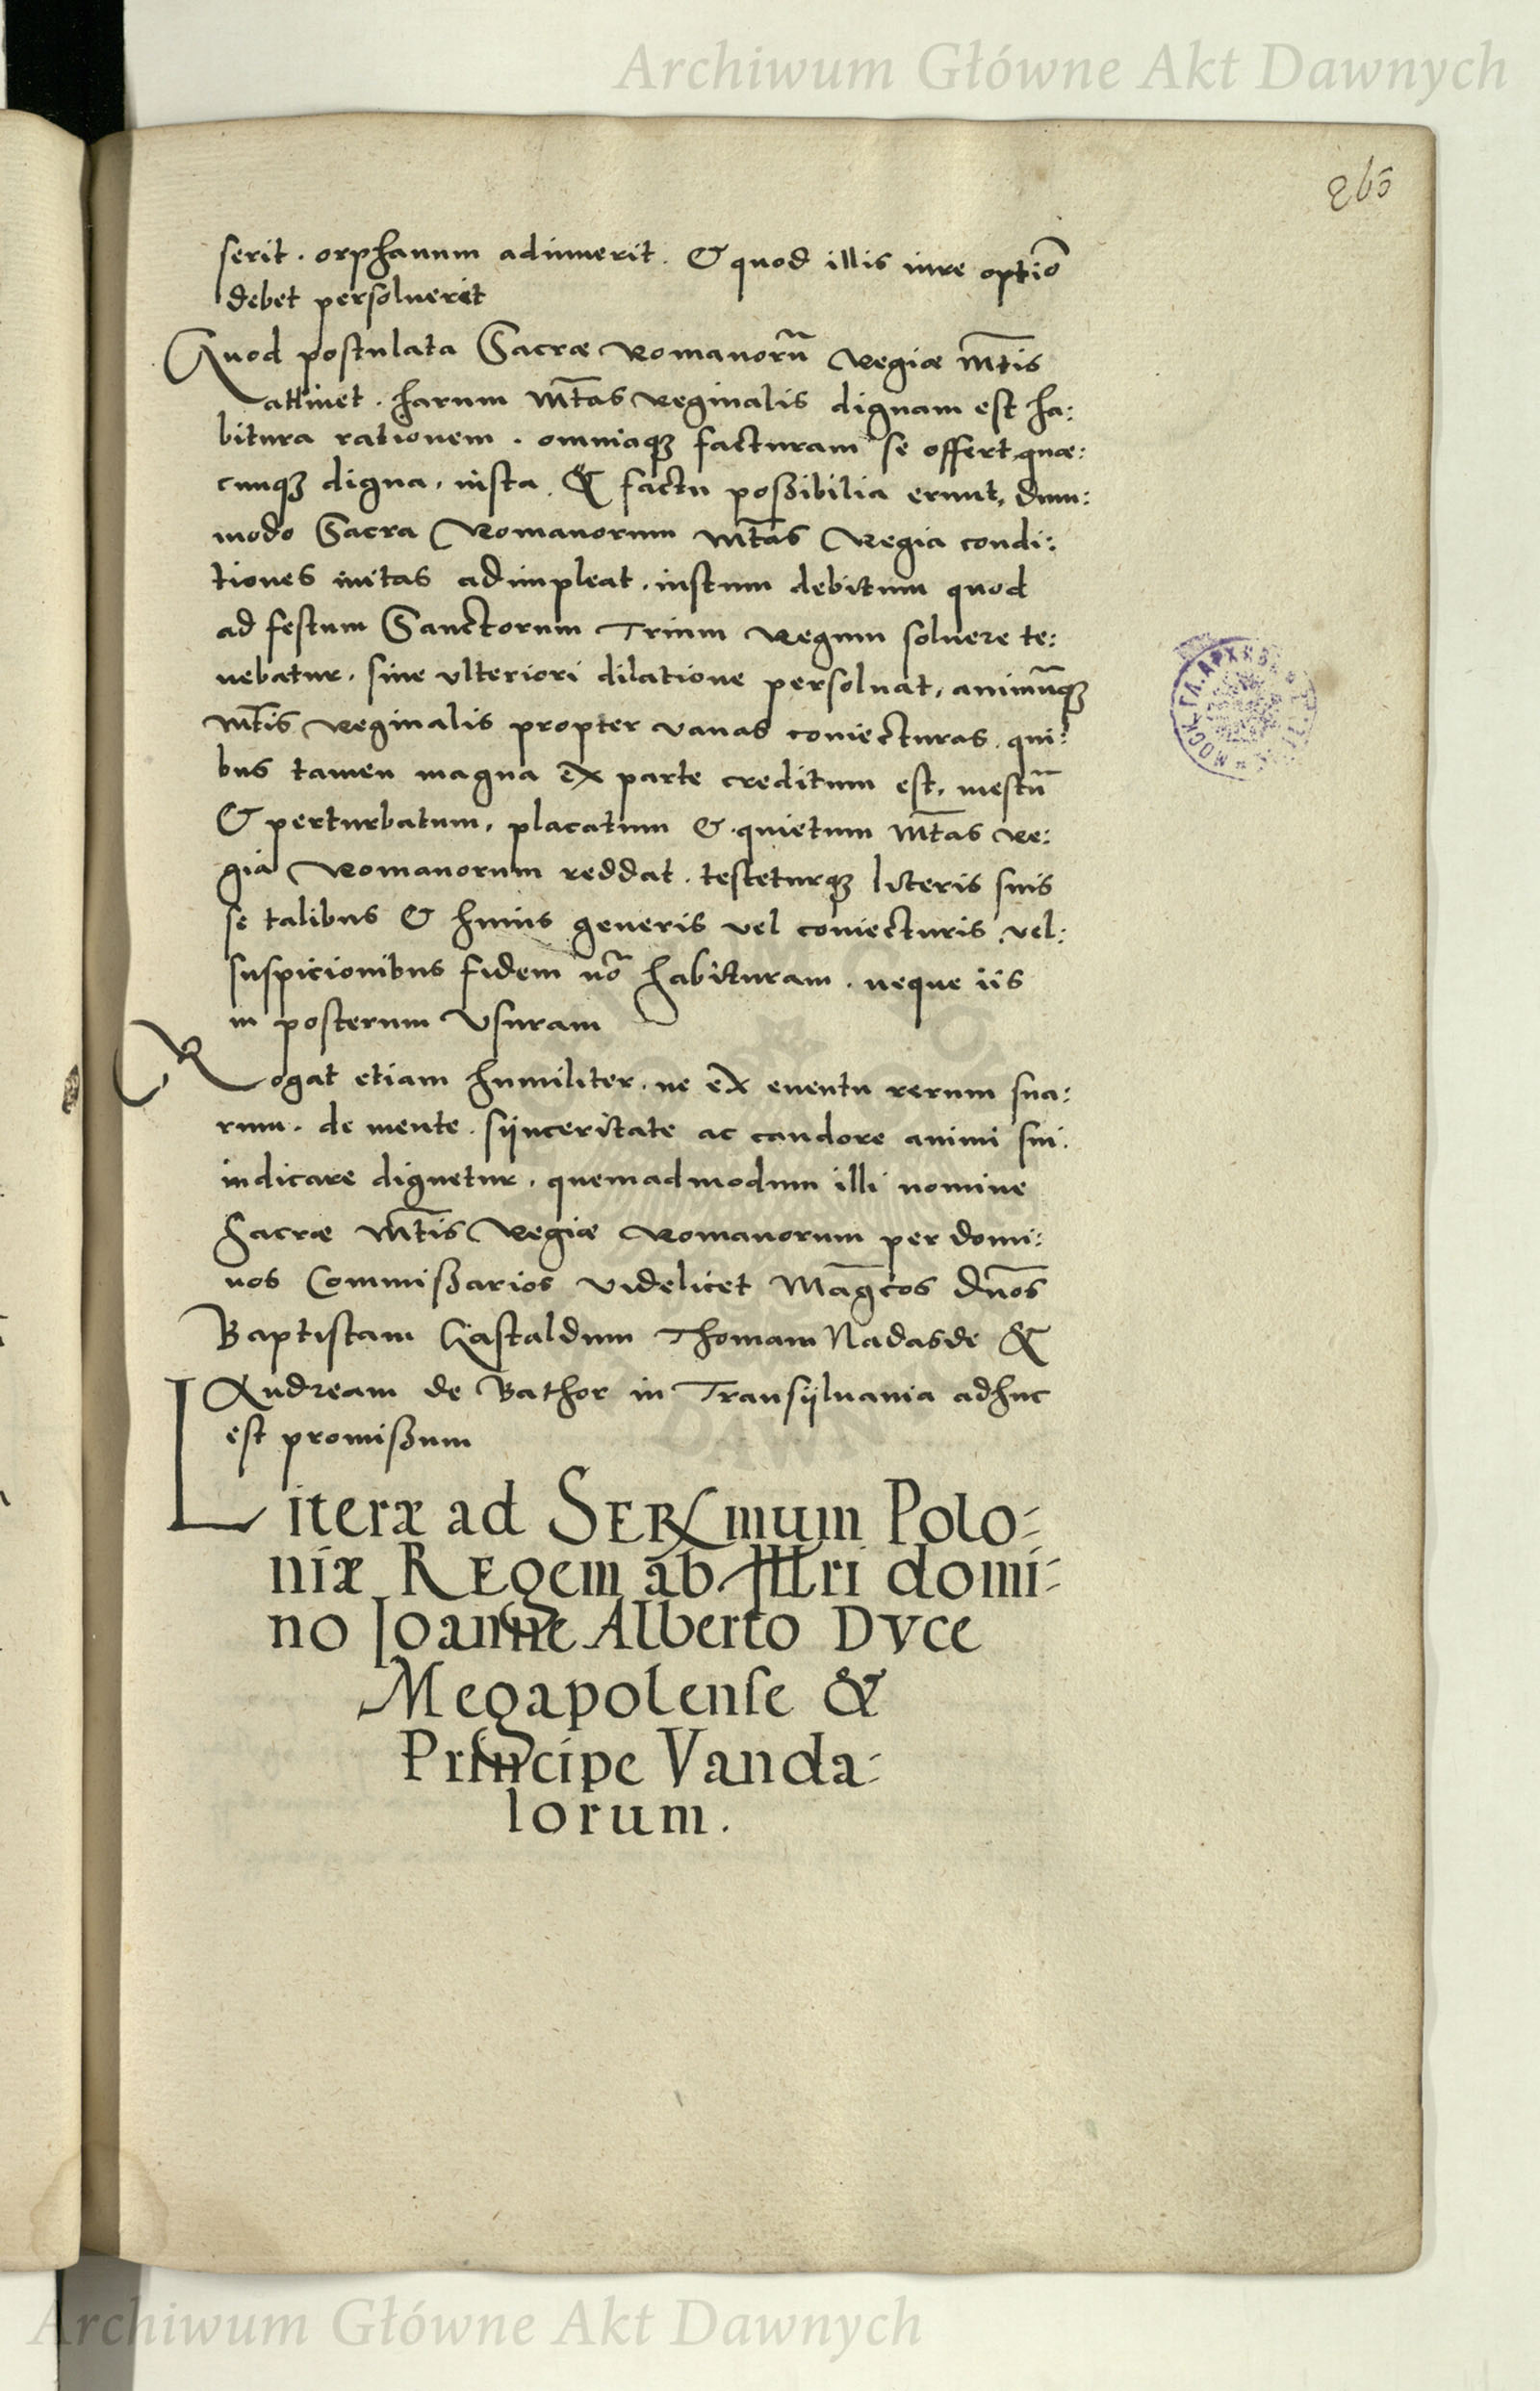 Archiwum Główne Akt Dawnych
265
serit. orphanum adiuuerit. & quod illis iure optio͞
debet persoluerit
Quod postulata Sacræ Romanorū Regiæ Mt͞is
attinet. harum Mt͞as Reginalis dignam est ha:
bitura rationem. omniaqꝫ facturam se offert quæ:
cunqꝫ digna, iusta. & factu poßibilia erunt, dum:
modo Sacra Romanorum Mt͞as Regia condi:
tiones initas adimpleat. iustum debitum quod
ad festum Sanctorum Trium Regum soluere te:
nebatur. sine vlteriori dilatione persoluat, animūqꝫ
Mt͞is Reginalis propter vanas coniecturas. qui:
bus tamen magna ex parte creditum est, mestū
& perturbatum, placatum & quietum Mt͞as Re:
gia Romanorum reddat. testeturqꝫ literis suis
se talibus & huius generis vel coniecturis, vel:
suspicionibus fidem nō habituram. neque iis
in posterum vsuram
Rogat etiam humiliter. ne ex euentu rerum sua:
rum. de mente. sÿnceritate ac candore animi sui.
iudicare dignetur, quemadmodum illi nomine
sacræ Mt͞is Regiæ Romanorum per domi:
nos Commißarios videlicet Mag͞cos dn͞os
Baptistam Castaldum Thomam Nadasde &
Andream de Bathor in Transÿluania adhuc
est promißum
Literæ ad SERmum Polo-
niæ REgem ab Illri domi-
no Joanne Alberto Dvce
Megapolense &
Principe Vanda-
lorum.
Archiwum Główne Akt Dawnych